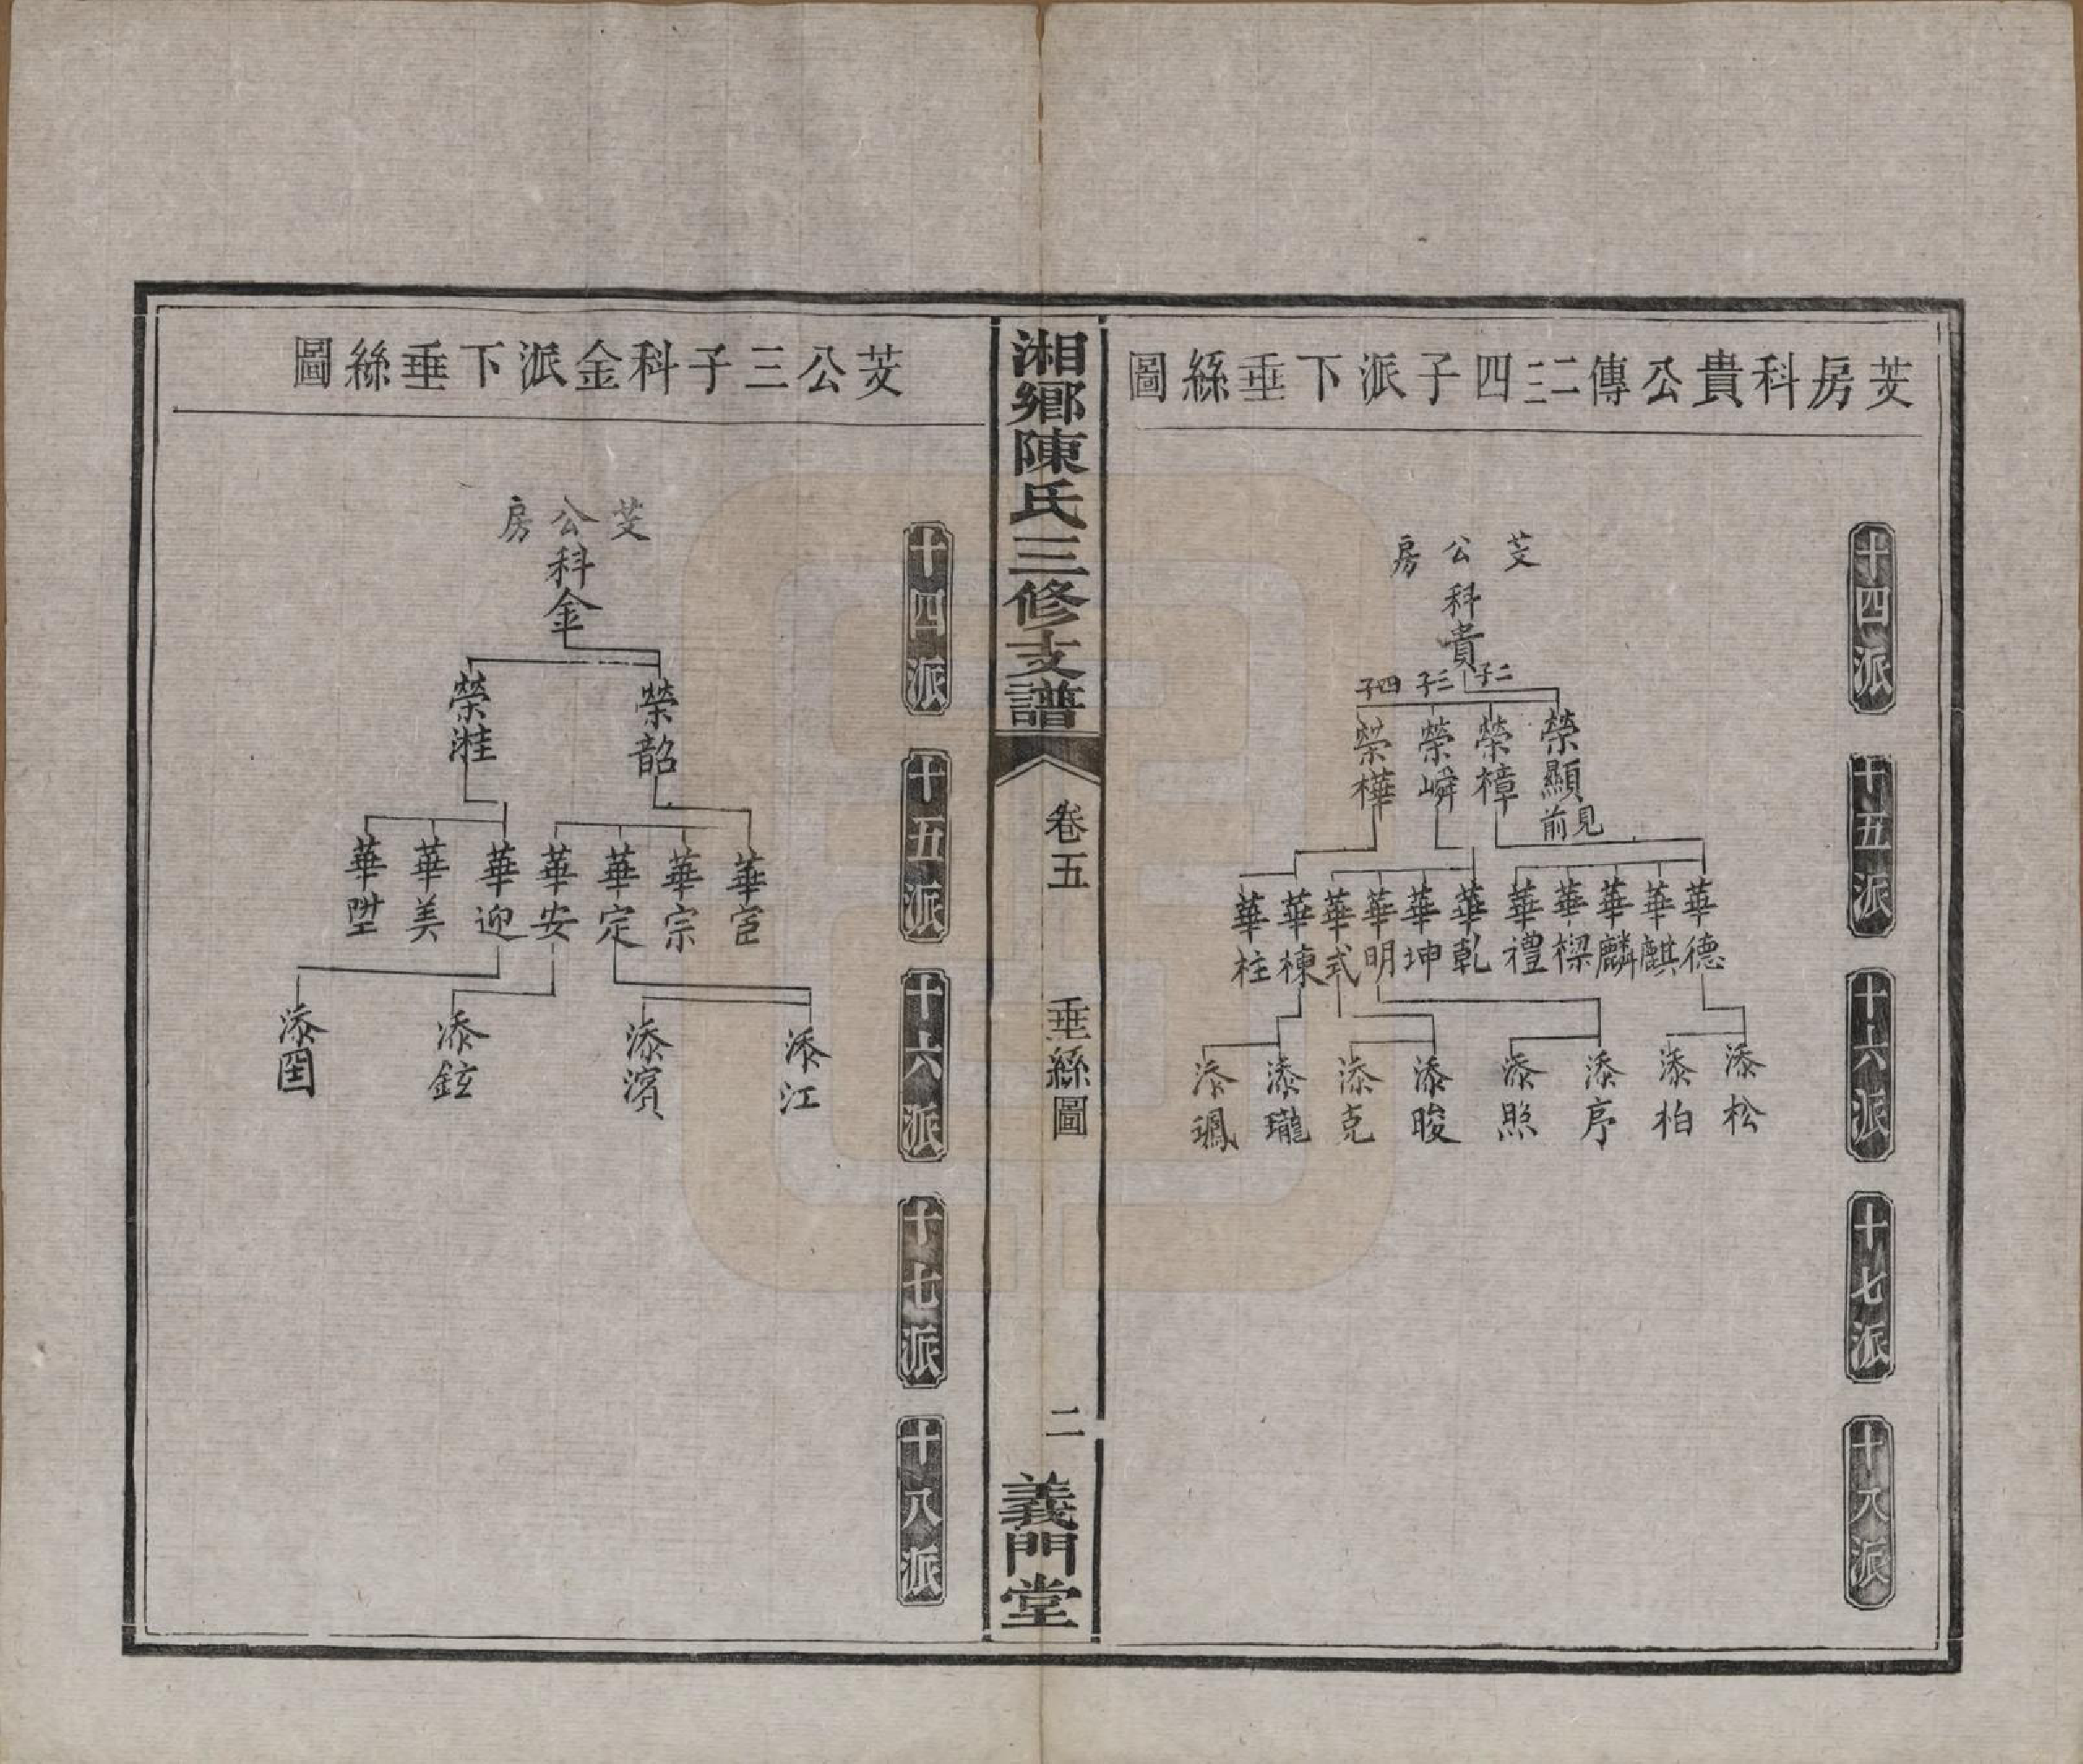 芰房科貴公傳二三四子派下垂絲圖
十四派
十五派
十六派
十七派
十八派
芰公房
科貴
二子
三子
四子
榮顯 見前
榮樟
榮嶙
榮樺
華德
華麒
華麟
華樑
華禮
華乾
華坤
華明
華式
華棟
華柱
添松
添柏
添序
添煦
添晙
添克
添瓏
添珮
湘鄉陳氏三修支譜
卷五
垂絲圖
二
義門堂
芰公三子科金派下垂絲圖
十四派
十五派
十六派
十七派
十八派
芰公房
科金
榮韶
榮溎
華宦
華宗
華定
華安
華迎
華美
華陞
添江
添濱
添鉉
添囯